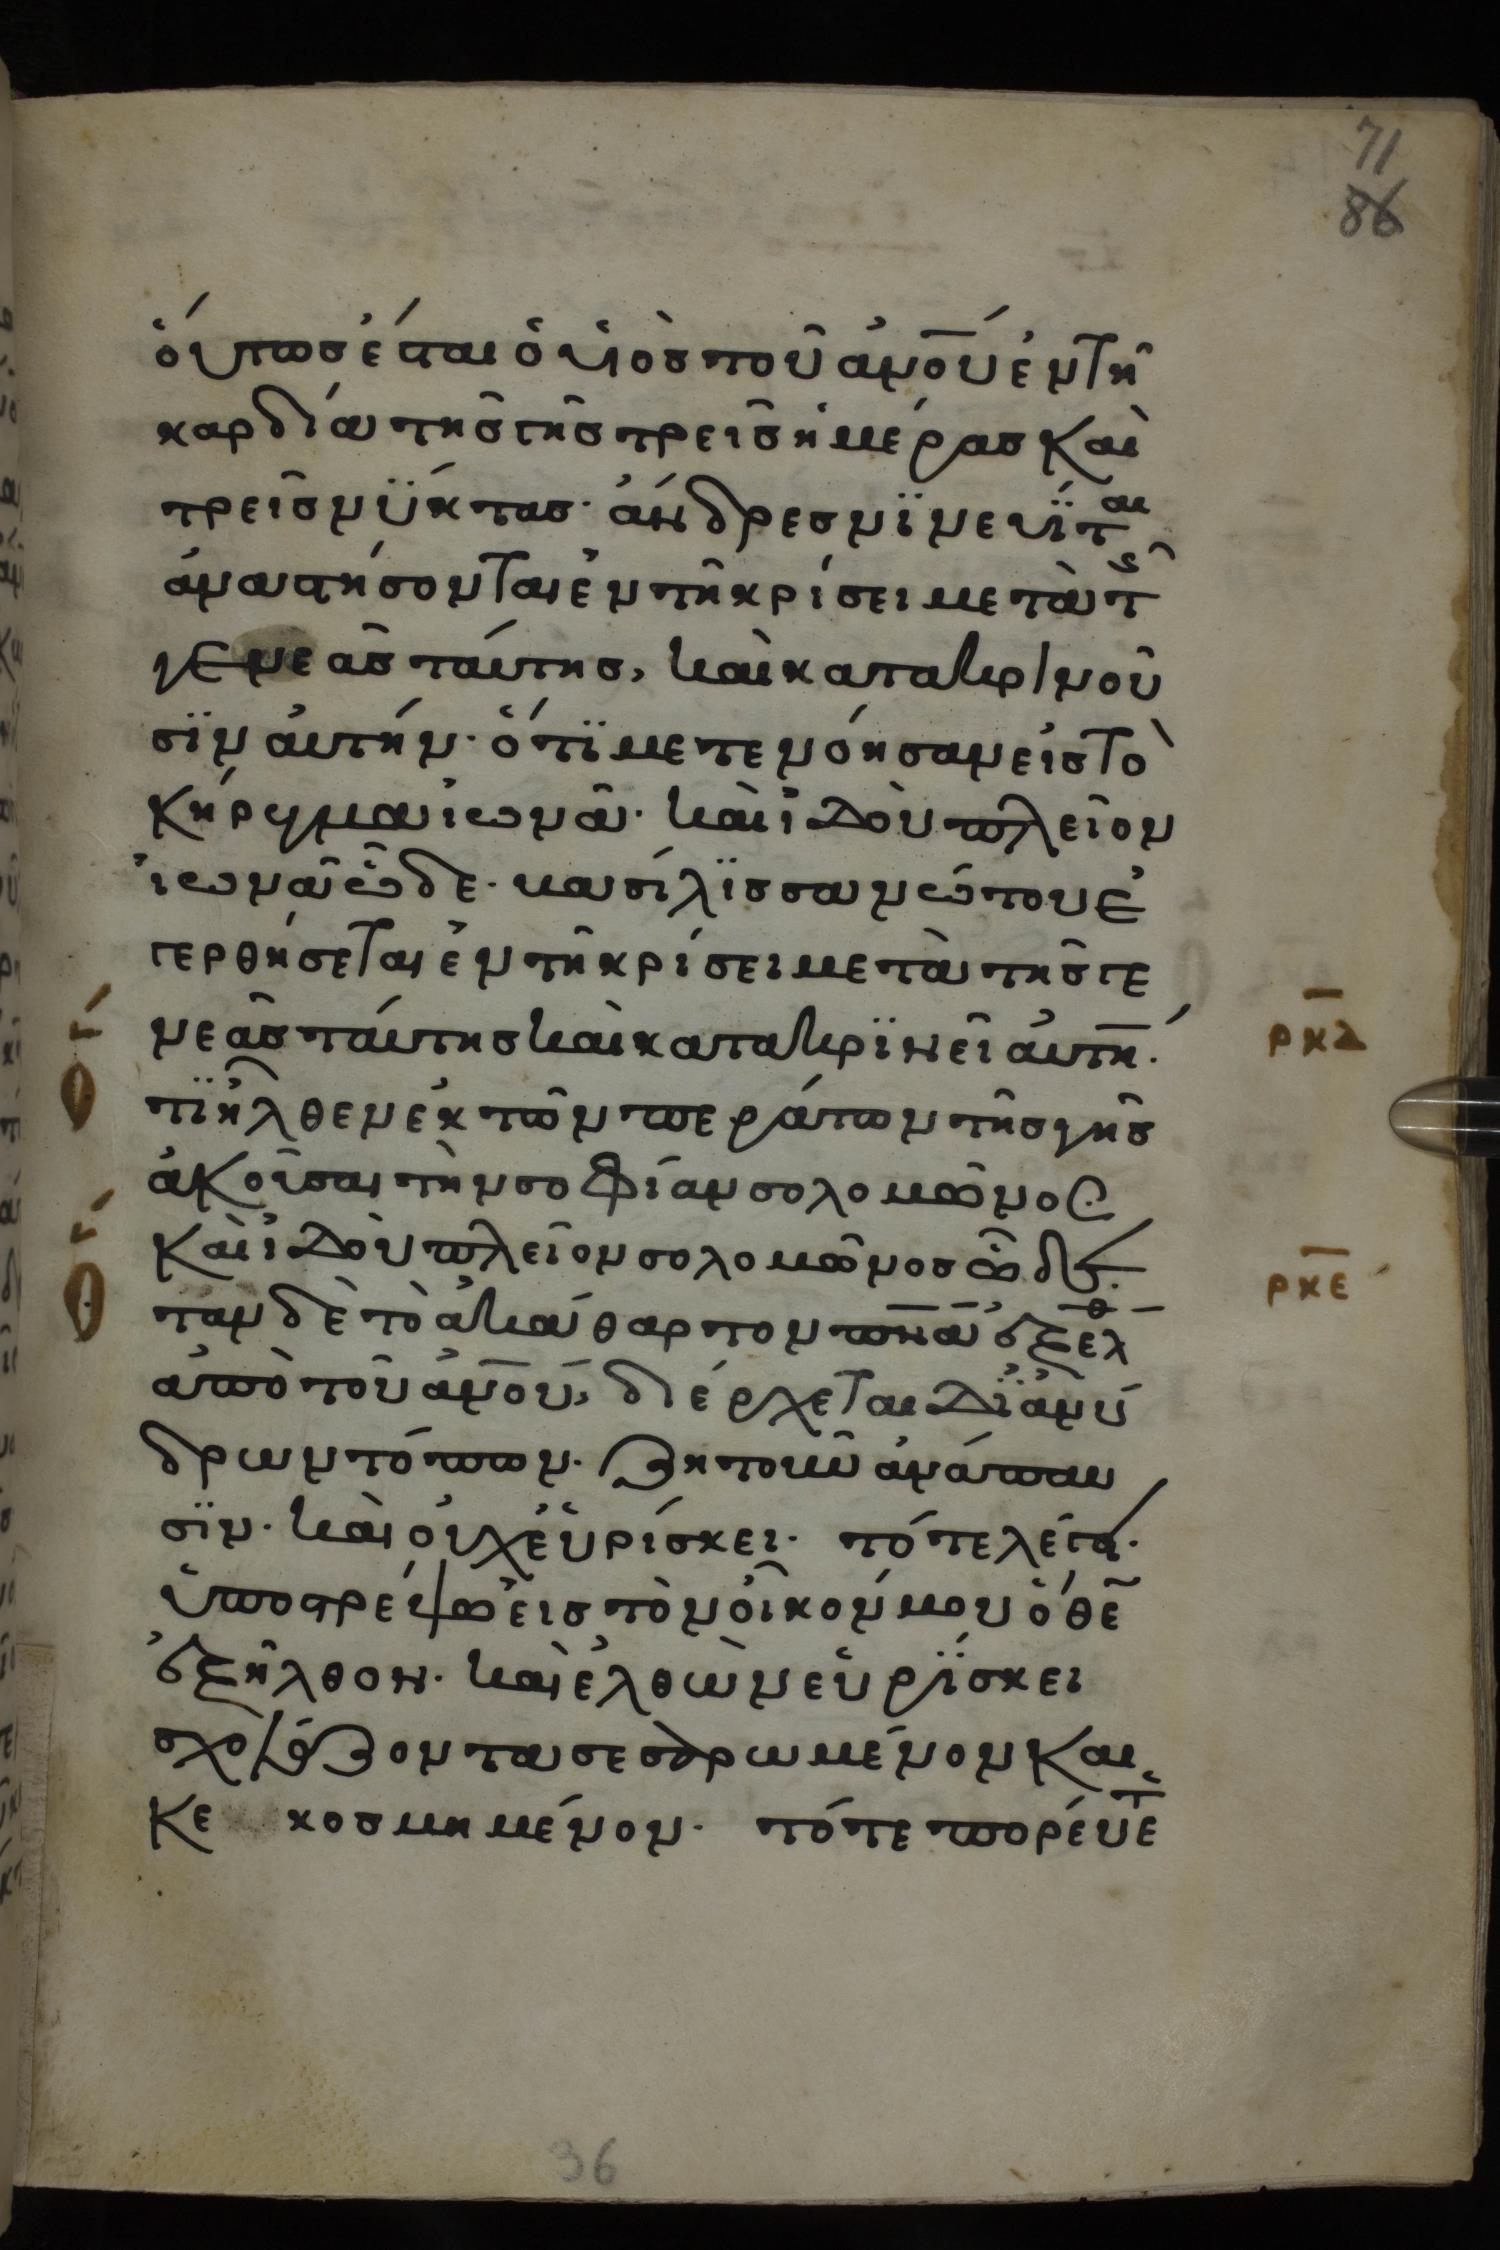 71
86
ὅυτωσ ἔσται ὁ υἱὸσ τοῦ ἀν̅ού ἐν τῆ
καρδία τῆσ γῆσ τρεῖσ ἡμέρασ καὶ
τρεῖσ νΰκτασ· ἄνδρεσ νϊνευΐται
ἀναστήσονται ἐν τῆ κρίσει μετὰ τῆς
γενεᾶσ ταύτησ, καὶ κατακρινοῦ
σϊν ἀυτήν· ὅτϊ μετενόησαν εἰσ τὸ
κήρυγμα ἰωνᾶ· καὶ ἰδοὺ πλεῖον
ἰωνᾶ ὧδε· βασίλϊσσα νώτου ἐ
γερθήσεται ἐν τῆ κρίσει μετὰ τῆσ γε
νεᾶσ ταύτησ καὶ κατακρϊνεῖ ἀυτή̅·
ρκδ
ὅ
τϊ ἦλθεν ἐκ τῶν περάτων τῆσ γῆσ
ἀκοῦσαι τὴν σοφίαν σολομῶνοσ
καὶ ἰδοὺ πλεῖον σολομῶνοσ ὧδε·
ρκε
ὅ
ταν δὲ τὸ ἀκάθαρτον π̅ν̅α̅ ἐξέλθ
ἀπὸ τοῦ ἀν̅ου̅, διέρχεται δϊ ἀνύ
δρων τόπων· ζητοῦν ἀνάπαυ
σϊν· καὶ οὐχ ἑυρίσκει· τότε λέγει·
ὑποστρέψω εἰσ τὸν οἶκον μου ὅθε̅
ἐξῆλθον· καὶ ἐλθὼν ἑυρΐσκει
σχολάζοντα σεσαρωμένον και
κε κοσμημένον· τότε πορέυετ
36